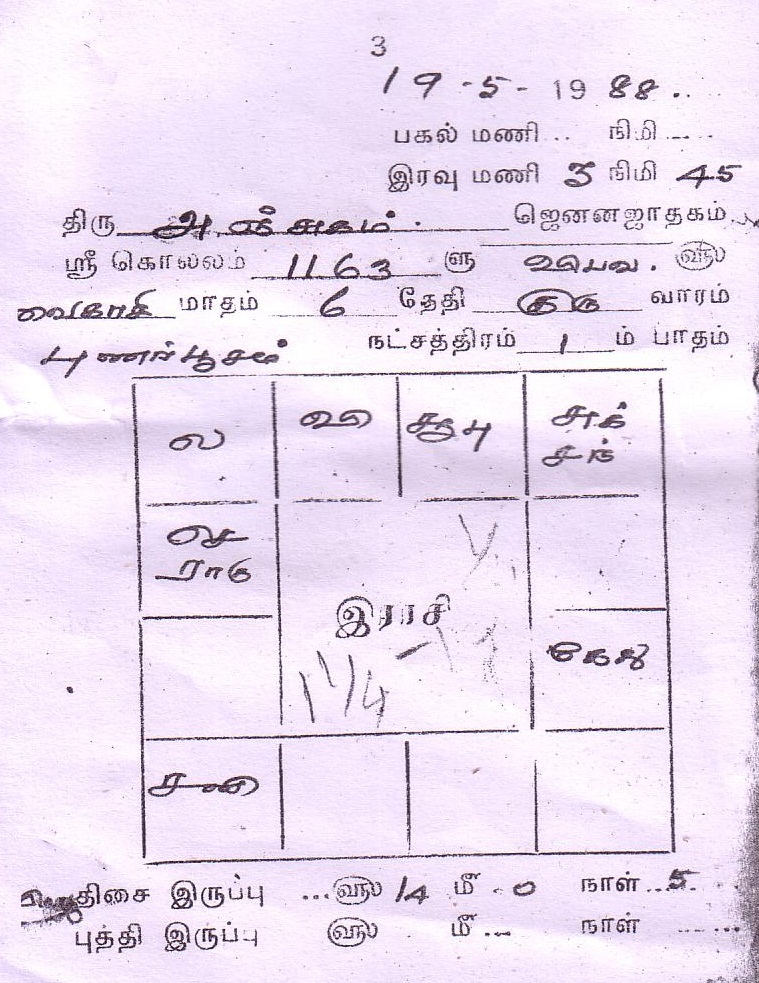 3
19-5-1988..
பகல் மணி... நிமி.....
இரவு மணி 3 நிமி 45
திரு ஜெனனஜாதகம்
ஸ்ரீ கொல்லம் 1163 ளு விபவ. ௵
வைகாசி மாதம் 6 தேதி குரு வாரம்
புணர்பூசம் நட்சத்திரம் 1 ம் பாதம்
ல வி சூபு சுக் சந்
செ ராகு
இராசி
கேது
1 1/4
சனி
திசை இருப்பு ...௵ 14 மீ 0 நாள் 5
புத்தி இருப்பு ௵ மீ... நாள் ......